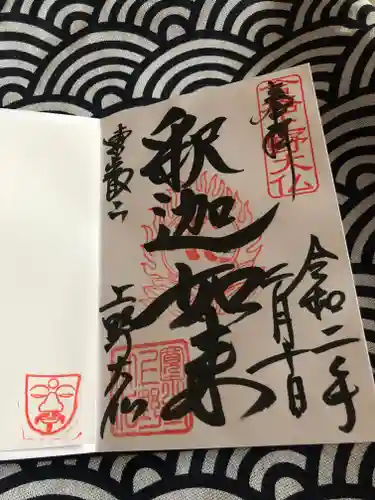 奉拝
令和二年
二月十日
釈迦如来
東叡山
上野大仏